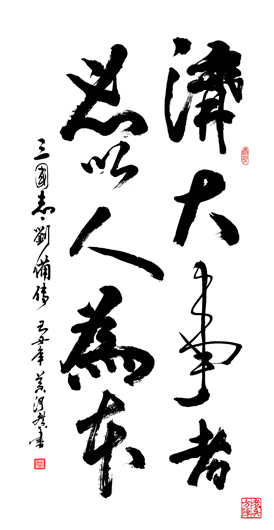 濟大事者
必以人為本
三國志·劉備傳 己丑年